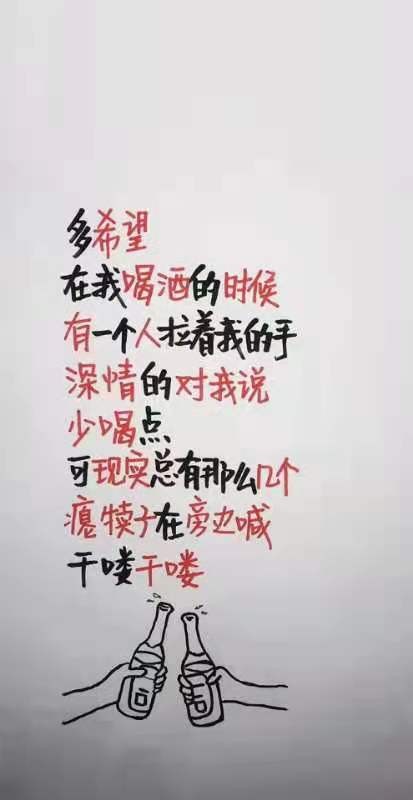 多希望
在我喝酒的时候
有一个人拉着我的手
深情的对我说
少喝点
可现实总有那么几个
瘪犊子在旁边喊
干喽干喽